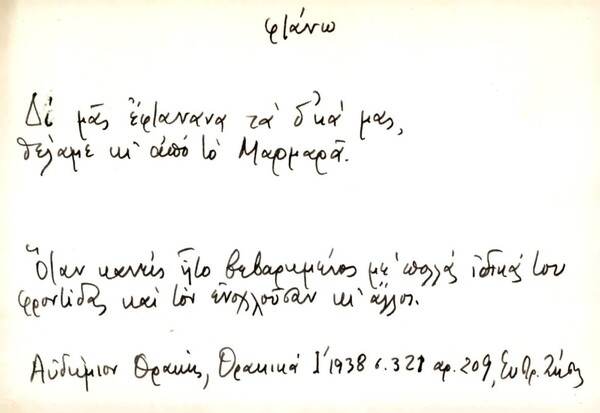 φτάνω
Δέ μᾶς ἔφτανανα τά δ'κά μας,
θέλαμε κι ἀπό τό Μαρμαρᾶ.
Ὅταν κανείς ἦτο βεβαρημένος μέ πολλά ἰδικά του
φροντίδας καί τόν ἐνοχλοῦσαν κι ἄλλοι.
Αὐδήμιον Θράκης, Θρακικά Ι΄ 1938 σ. 321 αρ. 209,